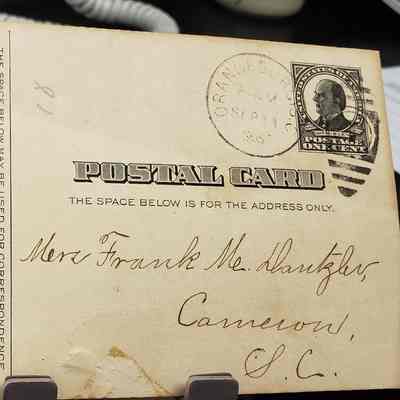 THE SPACE BELOW MAY BE USED FOR CORRESPONDENCE
18
ORANGEBURG, S.C.
SEP 11
UNITED STATES OF AMERICA
POSTAGE
ONE CENT
POSTAL CARD
THE SPACE BELOW IS FOR THE ADDRESS ONLY.
Mrs Frank Mc. Dantzler,
Cameron,
S. C.